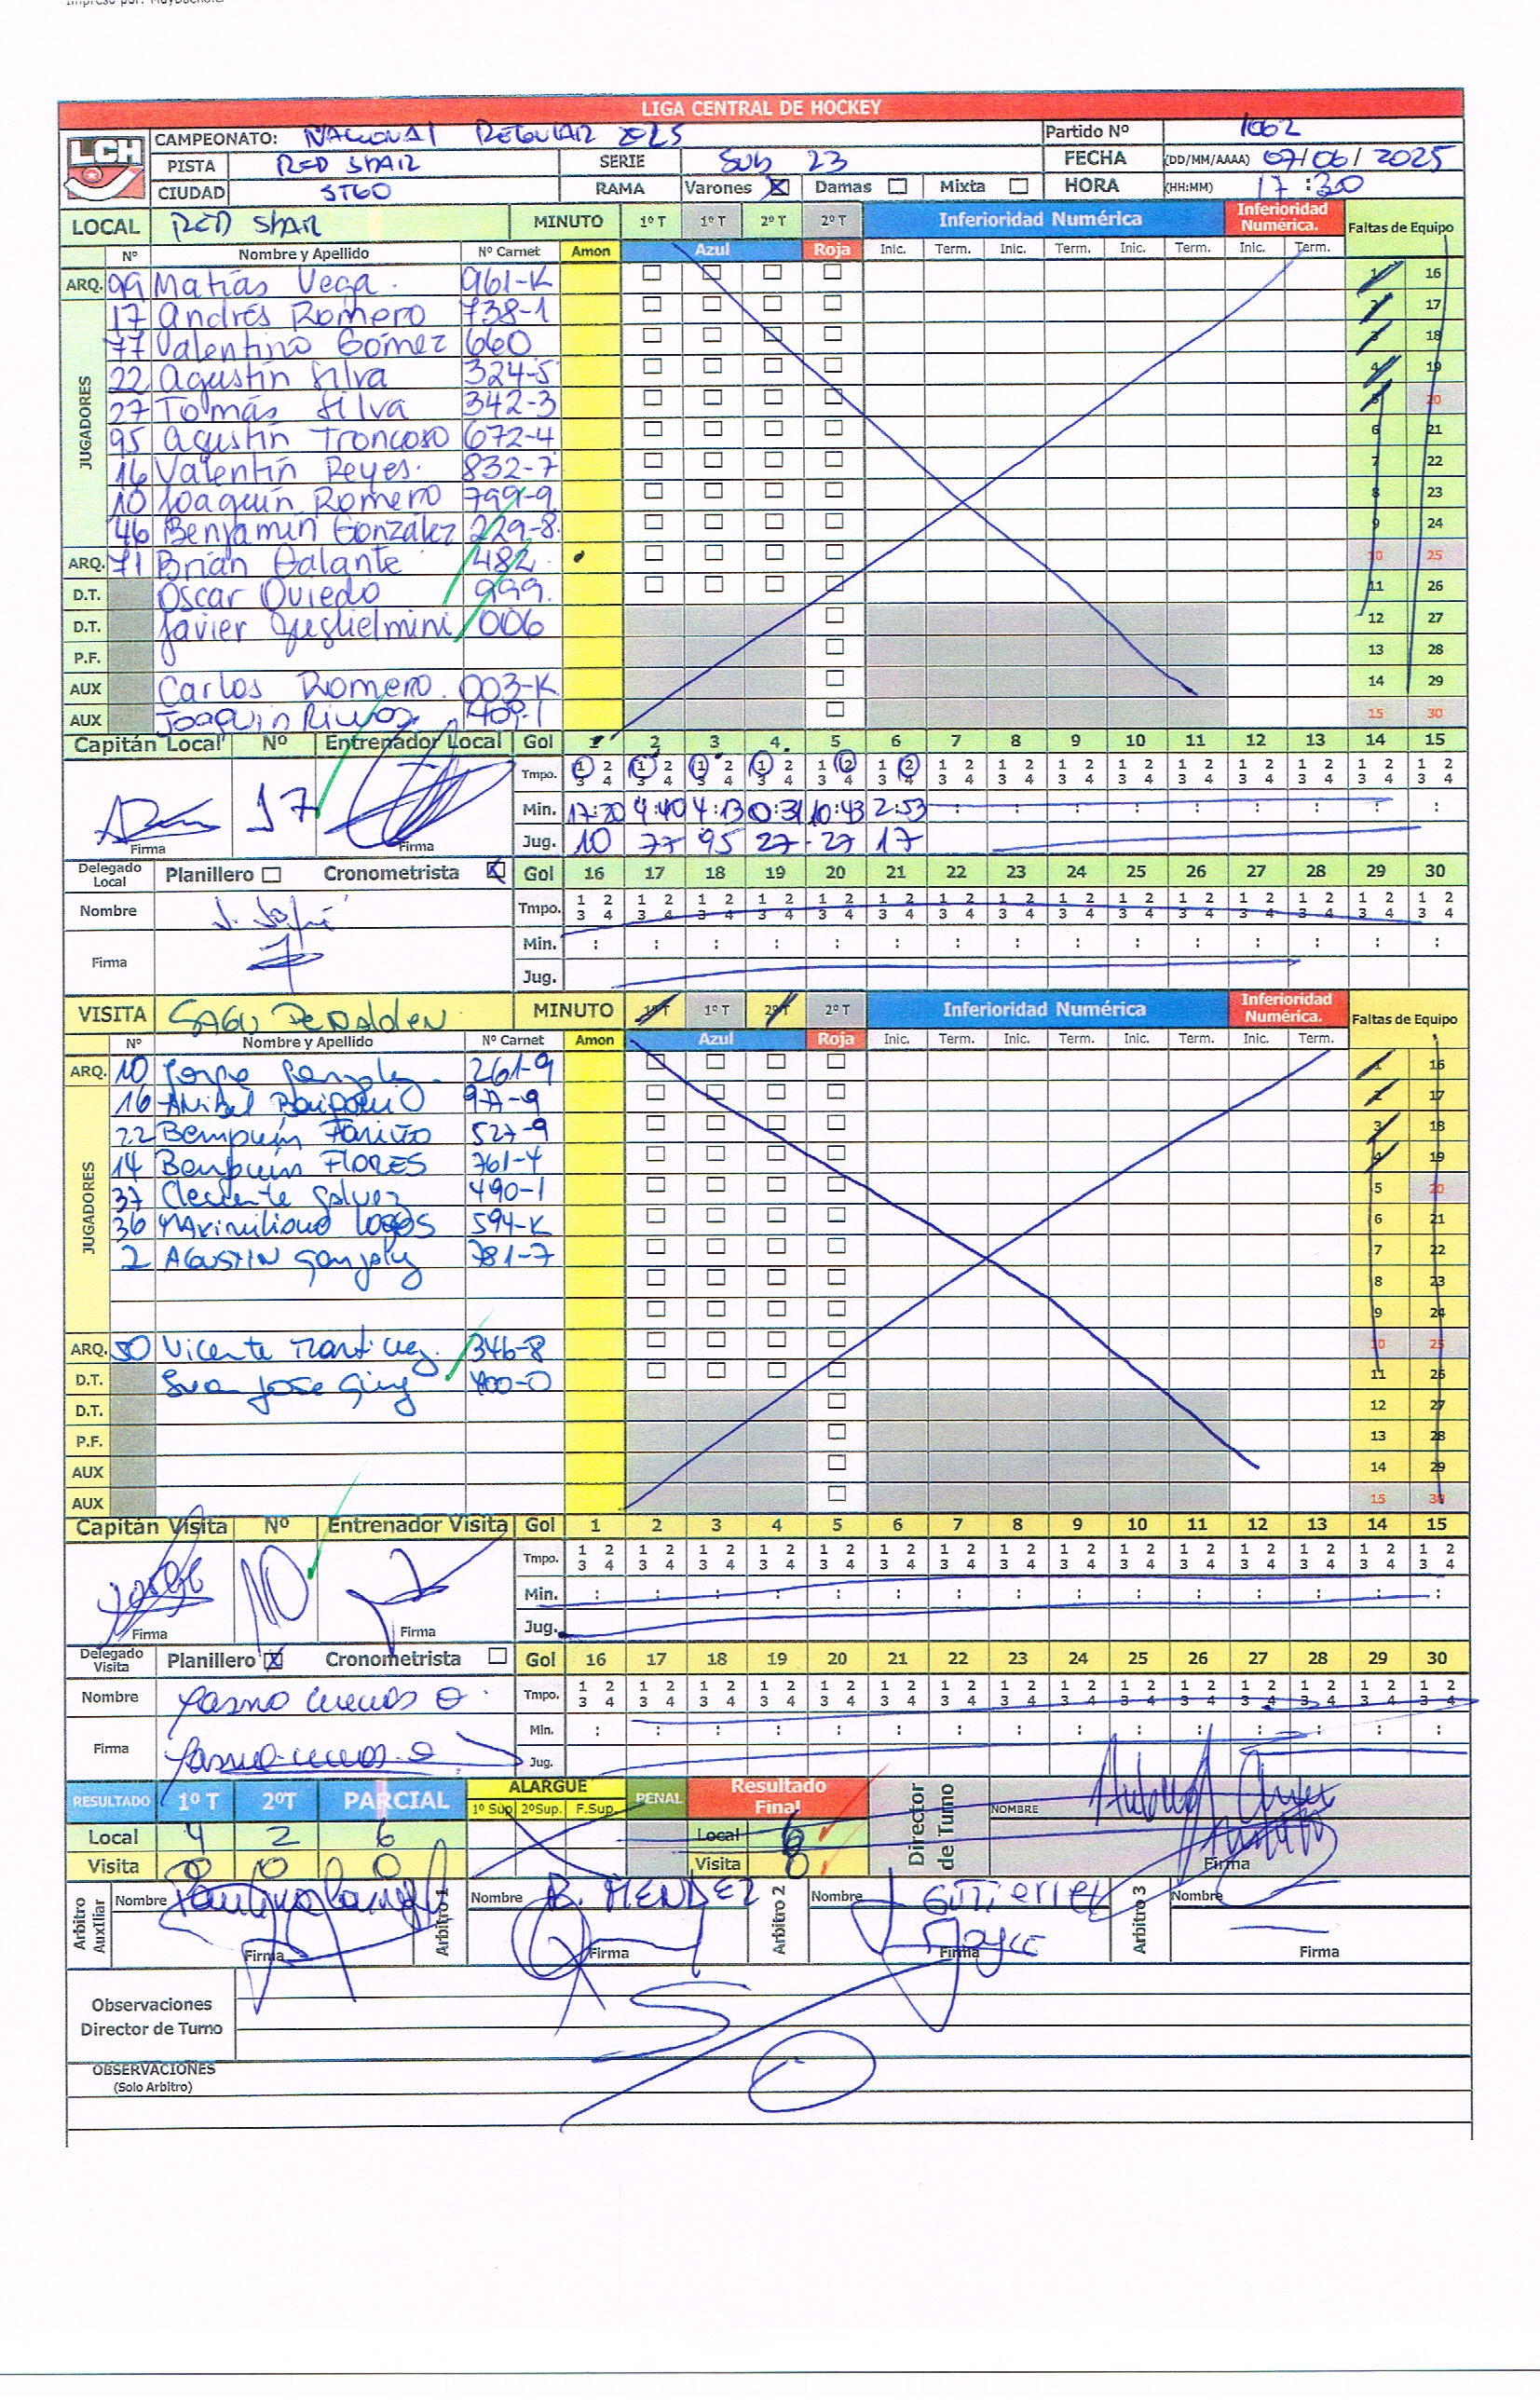 LIGA CENTRAL DE HOCKEY
LCH
CAMPEONATO: NACIONAL REGULAR 2025 Partido Nº 1062
PISTA RED STAR SERIE SUB 23 FECHA (DD/MM/AAAA) 07/06/2025
CIUDAD STGO RAMA Varones X Damas Mixta HORA (HH:MM) 17:30
LOCAL RED STAR MINUTO 1º T 1º T 2º T 2º T Inferioridad Numérica Inferioridad Numérica. Faltas de Equipo
Nº Nombre y Apellido Nº Carnet Amon Azul Roja Inic. Term. Inic. Term. Inic. Term. Inic. Term.
ARQ. 99 Matías Vega. 961-K 1 16
JUGADORES
17 Andrés Romero 738-1 2 17
77 Valentino Gómez 660 3 18
22 Agustín Silva 324-5 4 19
27 Tomás Silva 342-3 5 20
95 Agustín Troncoso 672-4 6 21
16 Valentín Reyes. 832-7 7 22
10 Joaquín Romero 799-9 8 23
46 Benjamín González 229-8. 9 24
ARQ. 71 Brian Galante 482 10 25
D.T. Oscar Oviedo 999. 11 26
D.T. Javier Guglielmini 006 12 27
P.F. 13 28
AUX Carlos Romero. 003-K 14 29
AUX Joaquin 409-1 15 30
Capitán Local Nº Entrenador Local Gol 1 2 3 4 5 6 7 8 9 10 11 12 13 14 15
Tmpo. 1 2 3 4 1 2 3 4 1 2 3 4 1 2 3 4 1 2 3 4 1 2 3 4 1 2 3 4 1 2 3 4 1 2 3 4 1 2 3 4 1 2 3 4 1 2 3 4 1 2 3 4 1 2 3 4 1 2 3 4
17 Min. 17:20 4:40 4:13 0:31 10:43 2:53 : : : : : : : : :
Firma Firma Jug. 10 77 95 27 27 17
Delegado Local Planillero Cronometrista X Gol 16 17 18 19 20 21 22 23 24 25 26 27 28 29 30
Nombre Tmpo. 1 2 3 4 1 2 3 4 1 2 3 4 1 2 3 4 1 2 3 4 1 2 3 4 1 2 3 4 1 2 3 4 1 2 3 4 1 2 3 4 1 2 3 4 1 2 3 4 1 2 3 4 1 2 3 4 1 2 3 4
Firma Min. : : : : : : : : : : : : : : :
Jug.
VISITA MINUTO 1º T 1º T 2º T 2º T Inferioridad Numérica Inferioridad Numérica. Faltas de Equipo
Nº Nombre y Apellido Nº Carnet Amon Azul Roja Inic. Term. Inic. Term. Inic. Term. Inic. Term.
ARQ. 10 Jorge 261-9 1 16
JUGADORES
16 Anibal 977-9 2 17
22 Benjamín Fariño 527-9 3 18
14 Benjamín FLORES 761-4 4 19
37 Clemente Galvez 490-1 5 20
36 Maximiliano Lagos 594-K 6 21
2 AGUSTIN Gonzalez 781-7 7 22
8 23
9 24
ARQ. 50 Vicente Martinez. 346-8 10 25
D.T. Juan Jose 400-0 11 26
D.T. 12 27
P.F. 13 28
AUX 14 29
AUX 15 30
Capitán Visita Nº Entrenador Visita Gol 1 2 3 4 5 6 7 8 9 10 11 12 13 14 15
Tmpo. 1 2 3 4 1 2 3 4 1 2 3 4 1 2 3 4 1 2 3 4 1 2 3 4 1 2 3 4 1 2 3 4 1 2 3 4 1 2 3 4 1 2 3 4 1 2 3 4 1 2 3 4 1 2 3 4 1 2 3 4
10 Min. : : : : : : : : : : : : : : :
Firma Firma Jug.
Delegado Visita Planillero X Cronometrista Gol 16 17 18 19 20 21 22 23 24 25 26 27 28 29 30
Nombre Tmpo. 1 2 3 4 1 2 3 4 1 2 3 4 1 2 3 4 1 2 3 4 1 2 3 4 1 2 3 4 1 2 3 4 1 2 3 4 1 2 3 4 1 2 3 4 1 2 3 4 1 2 3 4 1 2 3 4 1 2 3 4
Firma Min. : : : : : : : : : : : : : : :
Jug.
RESULTADO 1º T 2ºT PARCIAL ALARGUE 1º Sup 2ºSup. F.Sup. PENAL Resultado Final Director de Turno NOMBRE
Local 4 2 6 Local 6
Visita 0 0 0 Visita 0 Firma
Arbitro Auxiliar Nombre Arbitro 1 Nombre B. MENDEZ Arbitro 2 Nombre J Gutierrez Arbitro 3 Nombre
Firma Firma Firma Firma
Observaciones
Director de Turno
OBSERVACIONES
(Solo Arbitro)